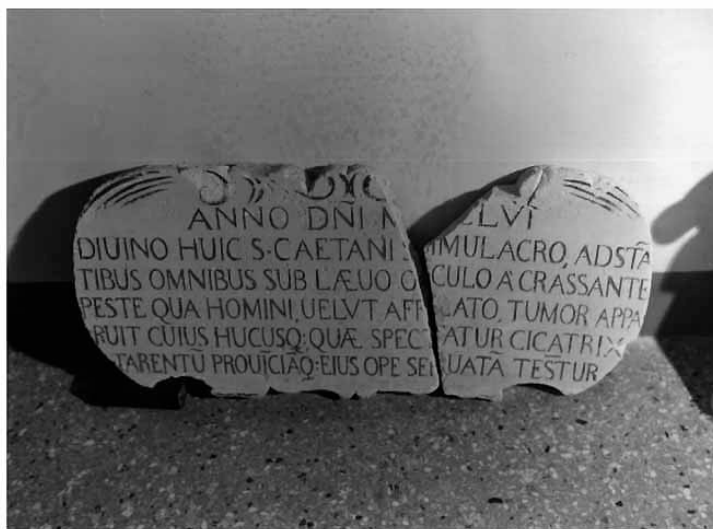 ANNO DÑI M ELVI
DIUINO HUIC S·CAETANI SIMULACRO, ADSTÃ
TIBUS OMNIBUS SUB LÆUO OCULO À CRASSANTE
PESTE QUA HOMINI, UELVT AFFLATO, TUMOR APPA
RUIT CUIUS HUCUSQ: QUÆ SPECTATUR CICATRIX
TARENTŪ PROUĪCIÃQ: EIUS OPE SERUATÃ TESTUR